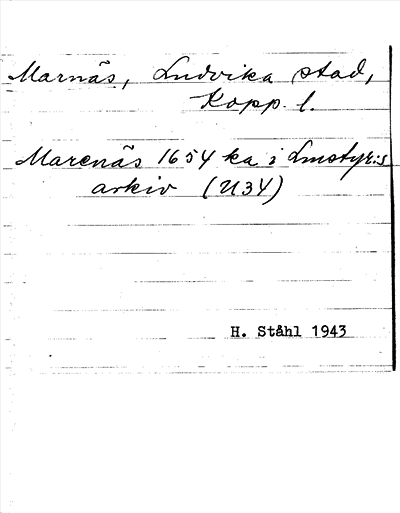 Marnäs, Ludvika stad,
Kopp. l.
Marenäs 1654 ka i Lmstyr:s
arkiv (U34)
H. Ståhl 1943